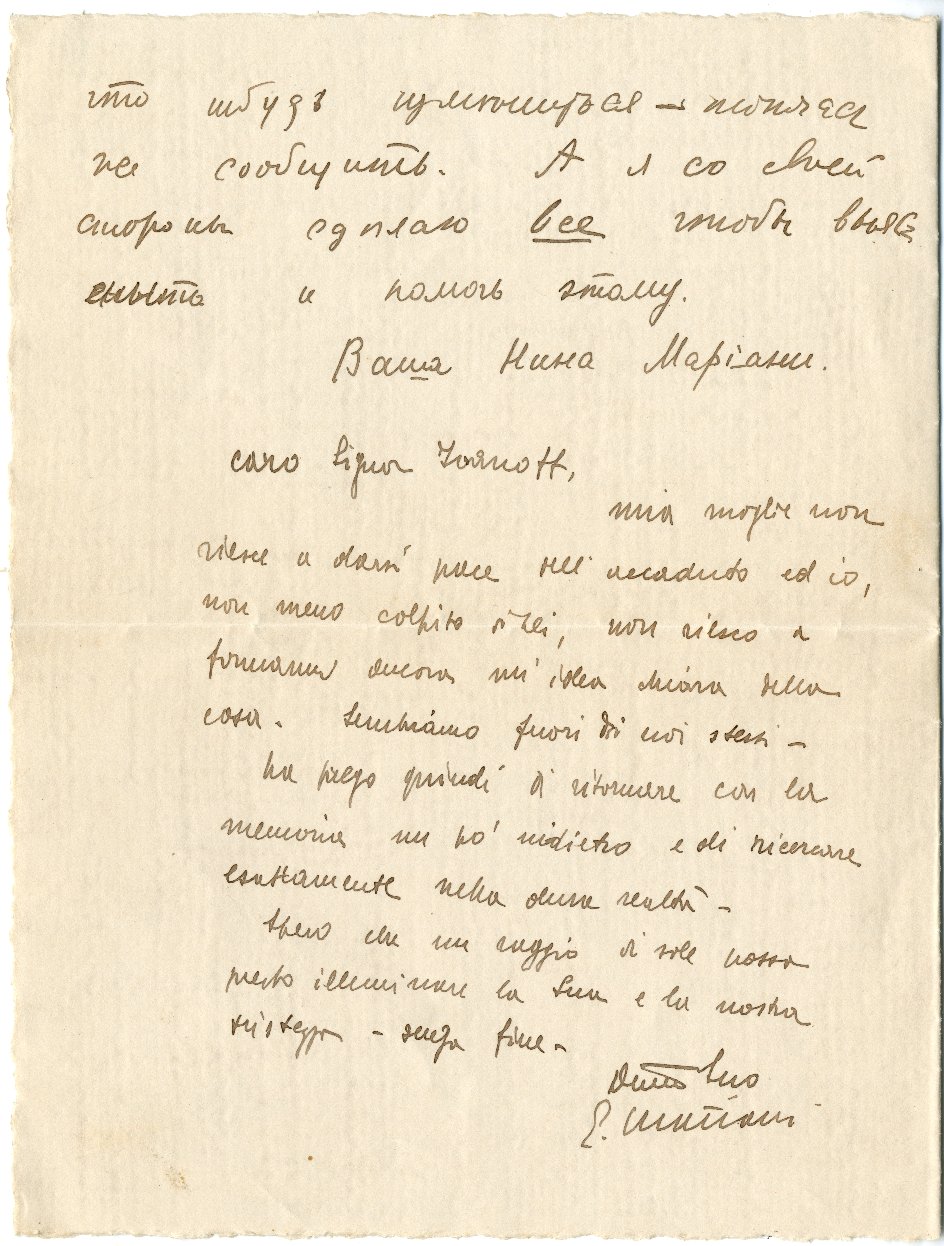 что нибудь
же сообщить. А я со своей
стороны сделаю все чтобы выяс
нить и помочь этому.
Ваша Нина Маріани.
caro Signor Ivanoff,
mia moglie non
riesce a darsi pace dell'accaduto ed io,
non meno colpito di lei, non riesco a
formarmi ancora un'idea chiara della
cosa. Sembriamo fuori di noi stessi –
La prego quindi di ritornare con la
memoria un po' indietro e di ricercare
esattamente nella dura realtà –
Spero che un raggio di sole possa
presto illuminare la Sua e la nostra
tristezza – senza fine –
Suo
E. Mariani